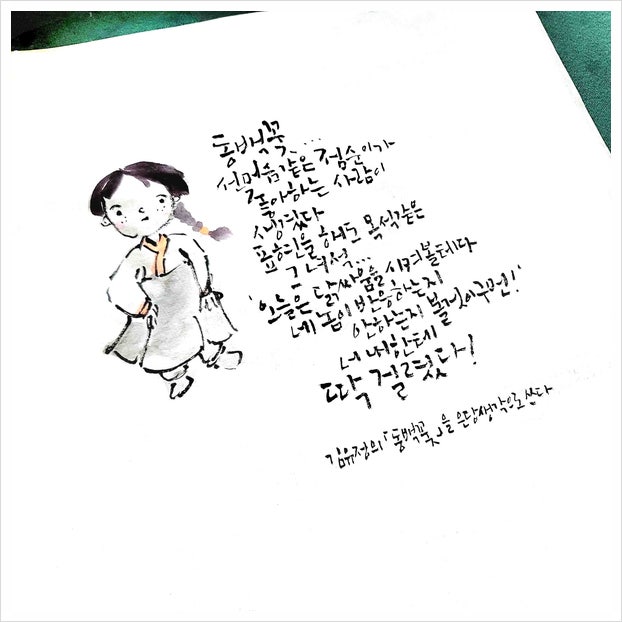 동백꽃...
선머슴같은 점순이가
좋아하는 사람이
생겼다
표현을 해도 목석같은
그 녀석...
'오늘은 닭싸움을 시켜볼테다
네놈이 반응하는지
안하는지 볼것이구먼!'
너 내한테
딱 걸렸다!
김유정의 「동백꽃」을 은당생각으로 쓰다